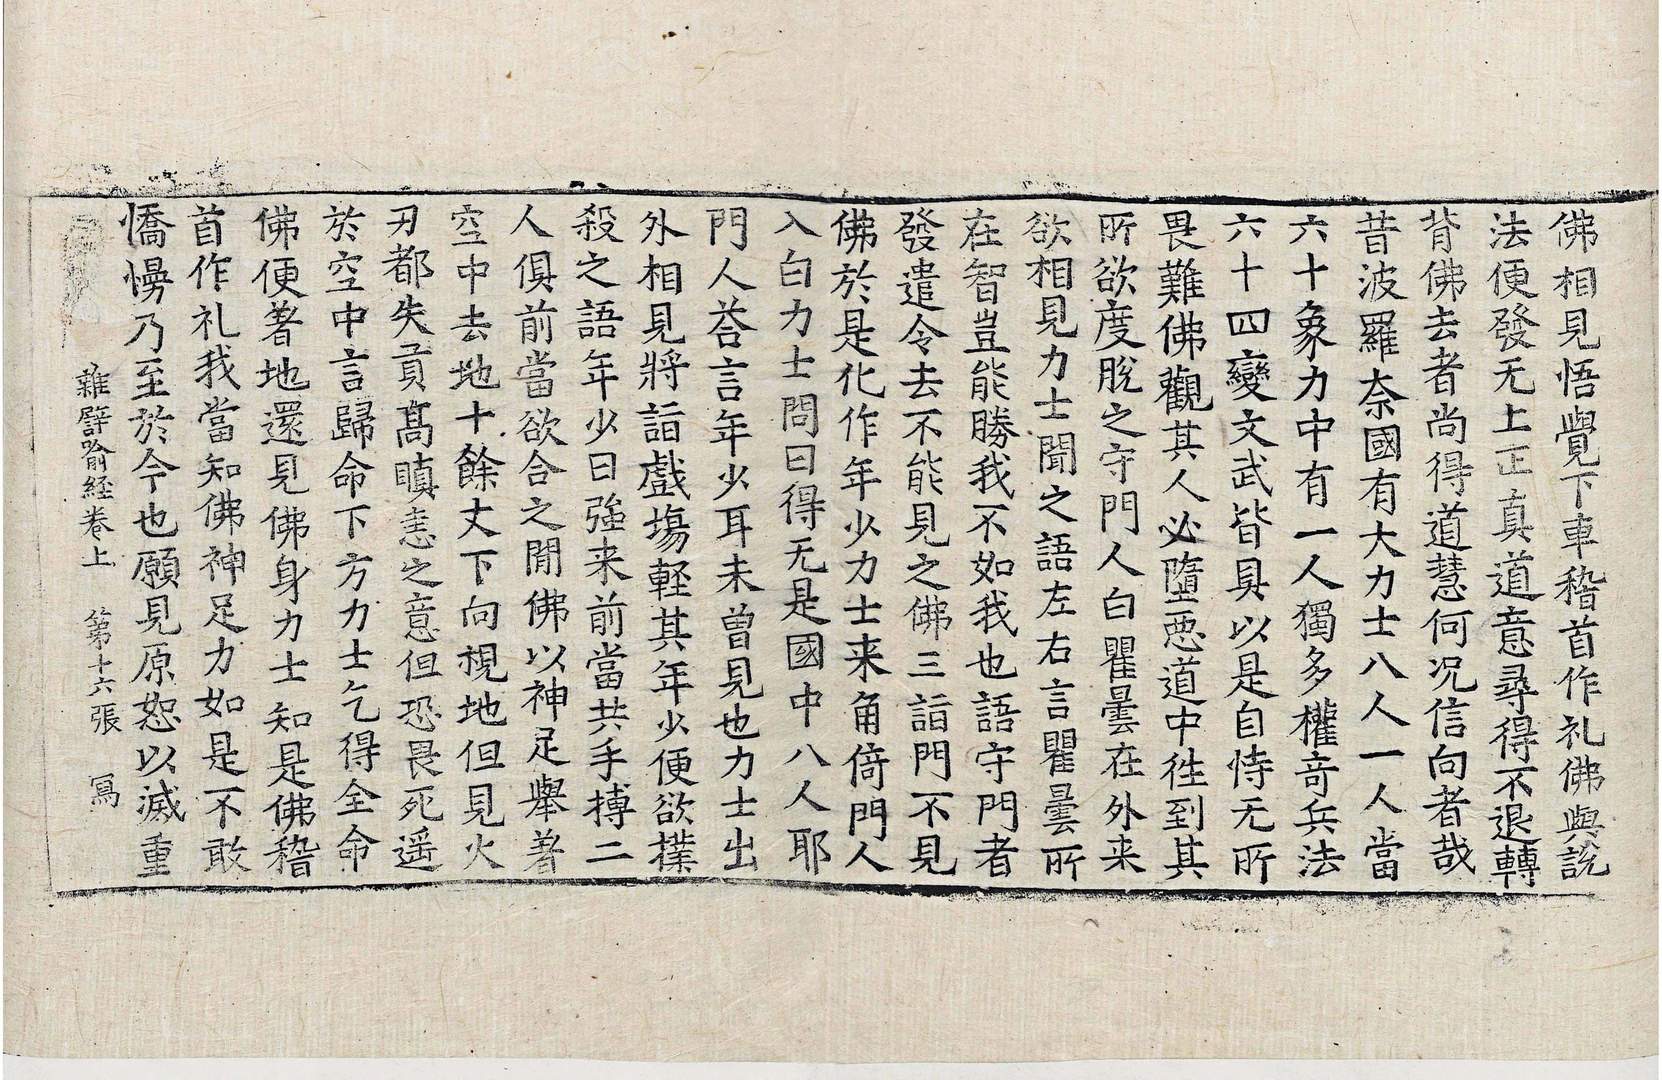 佛相見悟覺下車稽首作礼佛與說
法便發无上正真道意尋得不退轉
背佛去者尚得道慧何况信向者哉
昔波羅奈國有大力士八人一人當
六十象力中有一人獨多權竒兵法
六十四變文武皆具以是自恃无所
畏難佛觀其人必墮惡道中徃到其
所欲度脫之守門人白瞿曇在外来
欲相見力士聞之語左右言瞿曇所
在智豈能勝我不如我也語守門者
發遣令去不能見之佛三詣門不見
佛於是化作年少力士来角倚門人
入白力士問曰得无是國中八人耶
門人荅言年少耳未曽見也力士出
外相見將詣戲場輕其年少便欲撲
殺之語年少曰強来前當共手搏二
人俱前當欲合之間佛以神足舉著
空中去地十餘丈下向視地但見火
刃都失貢高瞋恚之意但恐畏死遥
於空中言歸命下方力士乞得全命
佛便著地還見佛身力士知是佛稽
首作礼我當知佛神足力如是不敢
憍慢乃至於今也願見原恕以滅重
雜譬喻経卷上 第十六張 寫